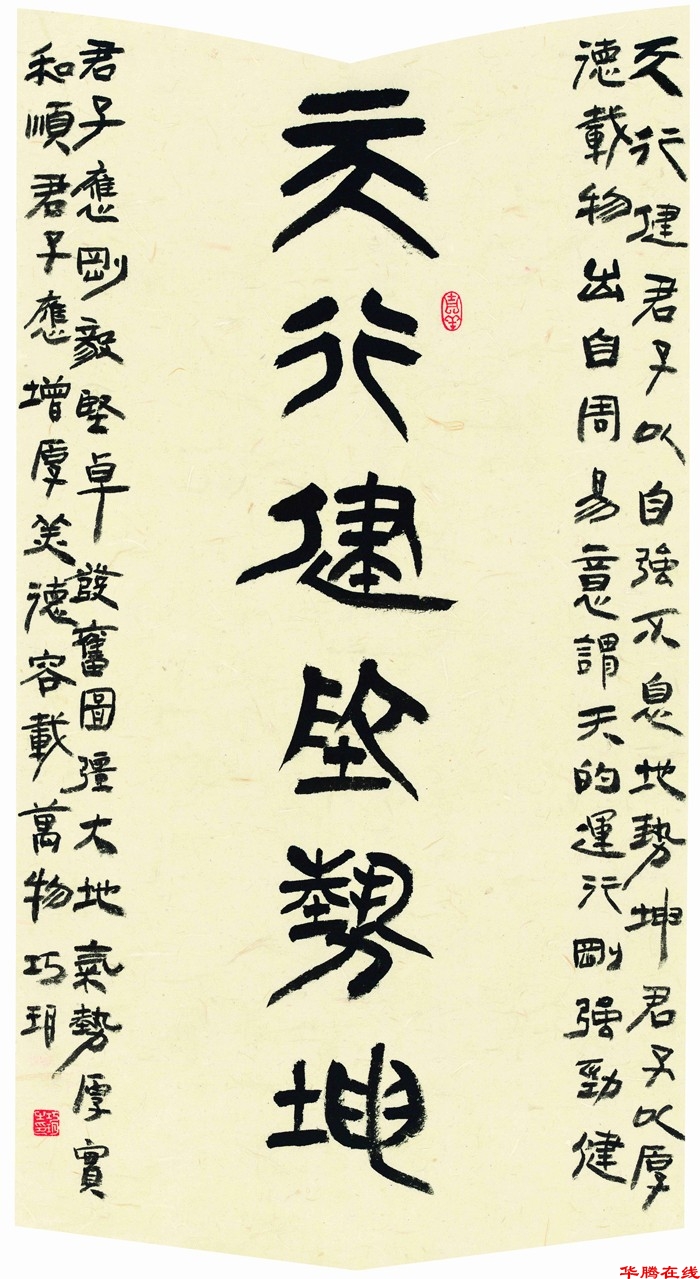 天行健君子以自強不息地勢坤君子以厚
德載物出自周易意謂天的運行剛強勁健
天行健地勢坤
君子應剛毅堅卓發奮圖彊大地氣勢厚實
和順君子應增厚美德容載萬物巧玥
华腾在线